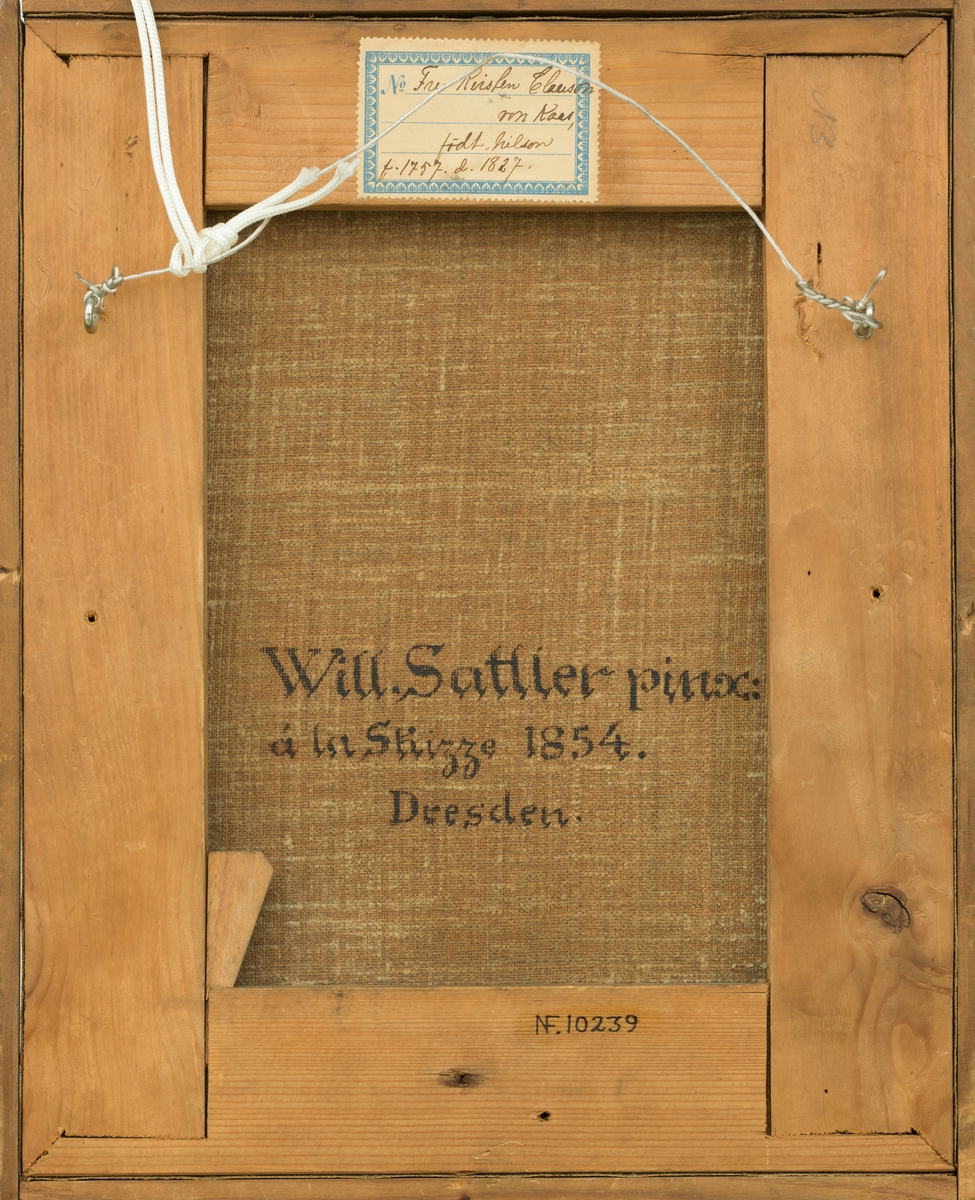 No Fru Kirsten Clauson
von Kaas,
födt. Nilson
f. 1757. d. 1827.
Will. Sattler pinx:
á la Skizze 1854.
Dresden.
NF.10239